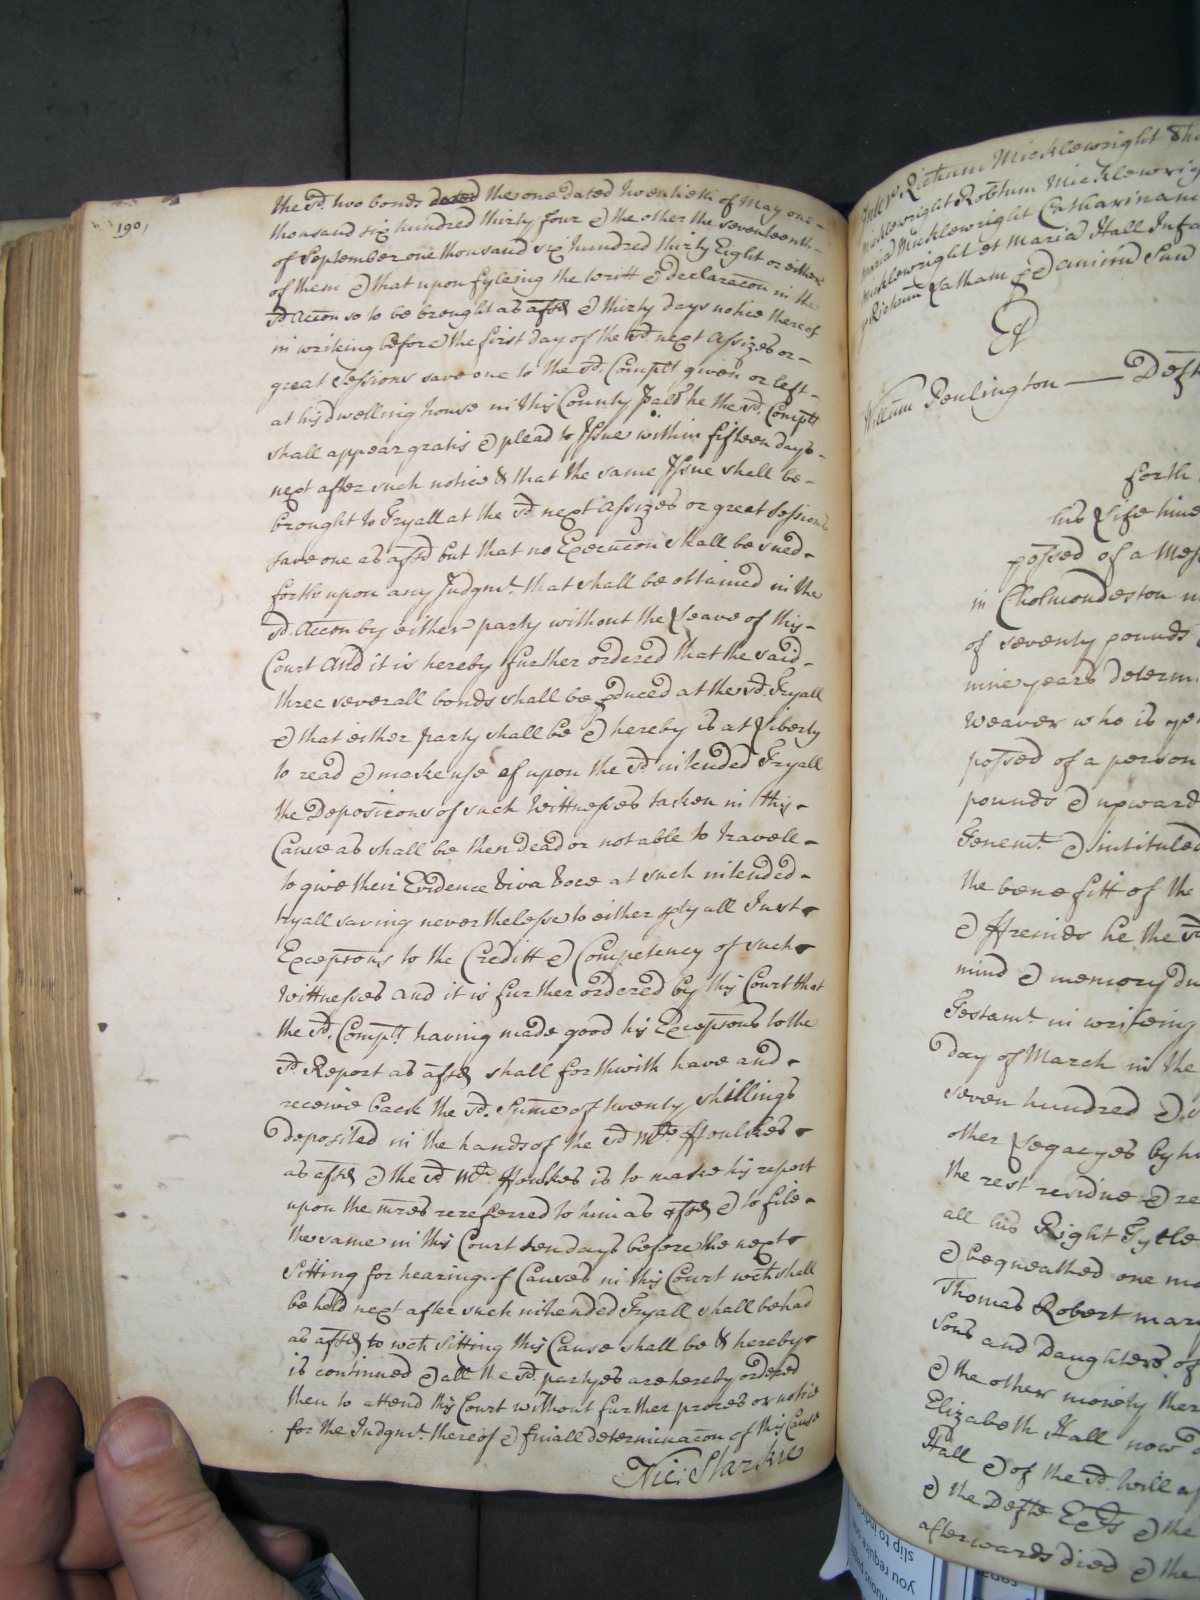 190
the sd. two bonds dated the one dated twentieth of May one
thousand six hundred thirty four & the other the seventeenth
of September one thousand six hundred thirty Eight or either
of them & that upon fyleing the writt & declaracon in the
sd. accon so to be brought as afsd & thirty days notice thereof
in writeing before the first day of the sd. next assizes or
great Sessions save one to the sd. Complt given or left
at his dwelling house in this County Palt he the sd. Complt
shall appear gratis & plead to Issue within fifteen days
next after such notice & that the same Issue shall be
brought to Tryall at the sd next assizes or great Sessions
save one as afsd but that no Execucon shall be sued
forth upon any Judgmt. that shall be obtained in the
sd. accon by either party without the Leave of this
Court and it is hereby further ordered that the said
three severall bonds shall be pduced at the sd. Tryall
& that either party shall be & hereby is at Liberty
to read & make use of upon the sd intended Tryall
the Deposicons of such Wittnesses taken in this
Cause as shall be then dead or not able to travell
to give their Evidence viva voce at such intended
tryall saving neverthelesse to either pty all Just
Excepsons to the Creditt & Competency of such
Wittnesses and it is further ordered by this Court that
the sd. Complt having made good his Excepsons to the
sd Report as afsd shall forthwith have and
receive back the sd. Sume of twenty shillings
deposited in the hands of the sd Mr. ffoulkes
as afsd & the sd Mr. ffoulkes is to make his report
upon the mres rereferred to him as afsd & to file
the same in this Court ten days before the next
Sitting for hearing of Causes in this Court wch shall
be held next after such intended Tryall shall be had
as afsd to wch Sitting this Cause shall be & hereby
is continued & all the sd. partyes are hereby ordered
then to attend this Court without further proces or notice
for the Judgmt. thereof & finall determinacon of this Cause
Nic: Starkie
Inter Richum Micklewright
Micklewright Robtum Micklewrig
Maria Micklewright Catharinam
Micklewright et Maria Hall Infa
p Richum Latham
Et
Willum Penlington Deft
forth
his Life time
possed of a Mess
in Cholmondeston
of seventy pounds
nine years determ
weaver who is
possed of a person
pounds & upward
Tenemt. & intituled
the benefitt of the
& ffreinds he the sd
mind & memory du
Testamt. in writeing
day of March in the
seven hundred &
other Legacyes by
the rest residue & re
all his Right Tytle
& bequeathed one mo
Thomas Robert mary
Sons and Daughters of
& the other moiety ther
Elizabeth Hall now
Hall & of the sd. will
& the Defte Exts & the
afterwards died & the